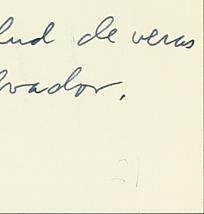 lud de veras
lvador.